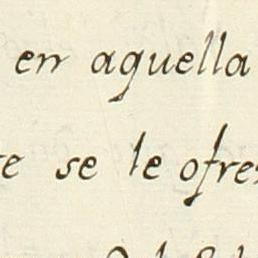 en aquella
se le ofre